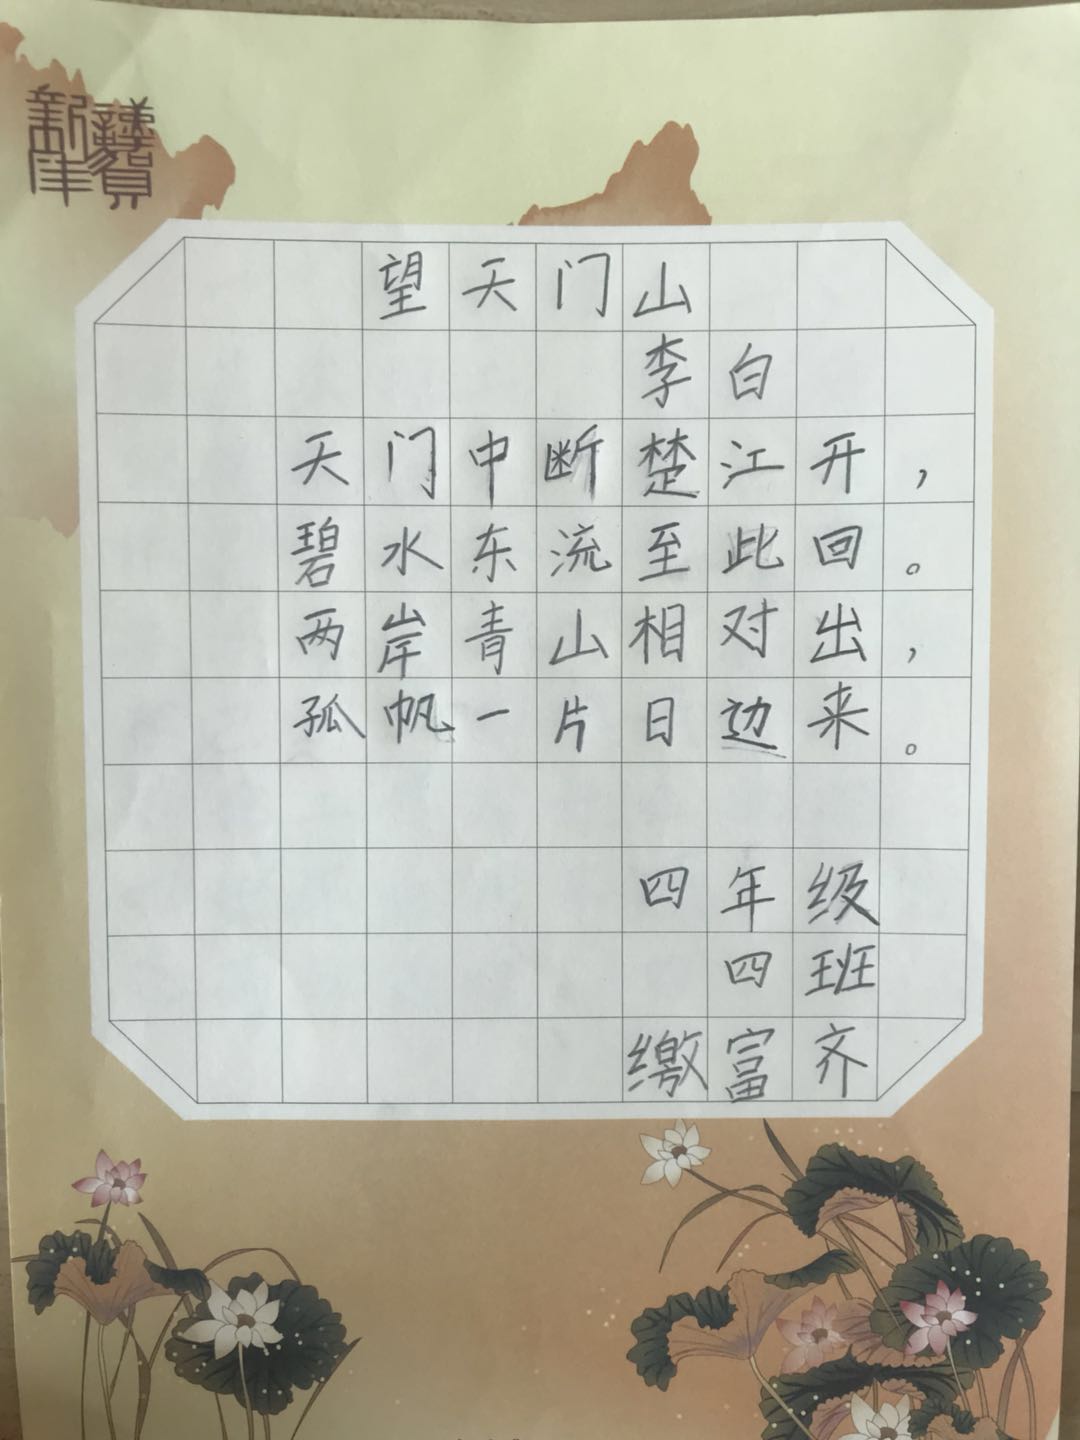 望天门山
李白
天门中断楚江开，
碧水东流至此回。
两岸青山相对出，
孤帆一片日边来。
四年级
四班
缴富齐